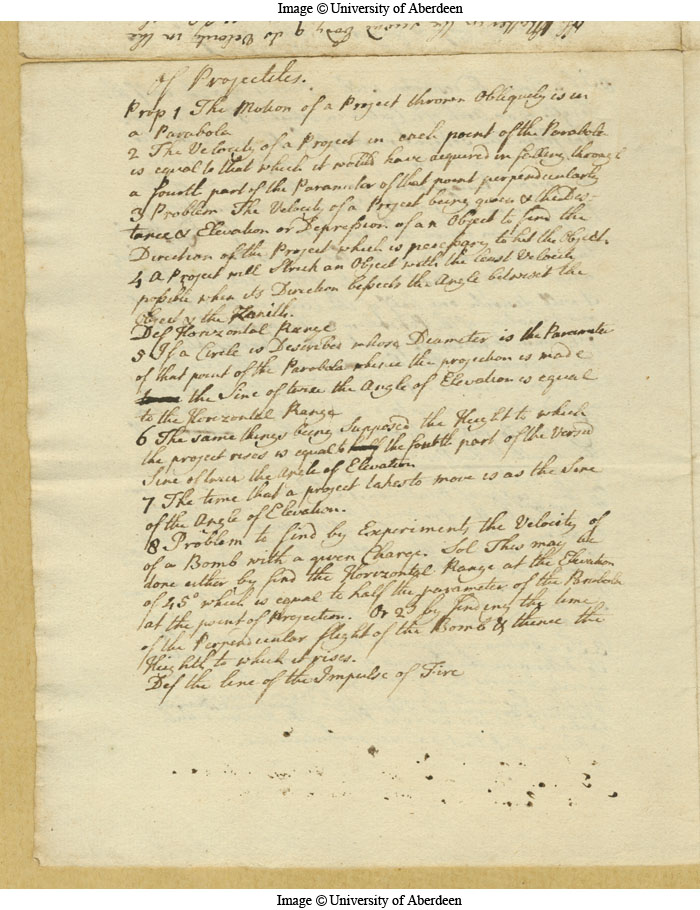 Image © University of Aberdeen
Of Projectiles.
Prop 1 The Motion of a Project thrown Obliquely is in
a Parabola
2 The Velocity of a Project in each point of the Parabola
is equal to that which it would have acquired in falling through
a fourth part of the Parameter of that point perpendicularly
3 Problem The Velocity of a Project being given & the Dis-
tance & Elevation or Depression of an Object to find the
Direction of the Project which is necessary to hit the Object.
4 A Project will Strick an Object with the least Velocity
possible when its Direction bissects the Angle betwixt the
Object & the Zenith.
Def Horizontal Range
5 If a Circle is Described whose Diameter is the Parameter
of that point of the Parabola whence the projection is made
the Sine of twice the Angle of Elevation is equal
to the Horizontal Range
6 The same things being Supposed the Height to which
the project rises is equal to half the fourth part of the Versed
Sine of twice the Angle of Elevation
7 The time that a project takes to move is as the Sine
of the Angle of Elevation.
8 Problem to find by Experiments the Velocity of
of a Bomb with a given Charge. Sol This may be
done either by find the Horizontal Range at the Elevation
of 45° which is equal to half the parameter of the Parabola
at the point of Projection. Or 2d by finding the time
of the Perpendicular flight of the Bomb & thence the
Heighth to which it rises.
Def the line of the Impulse of Fire
Image © University of Aberdeen